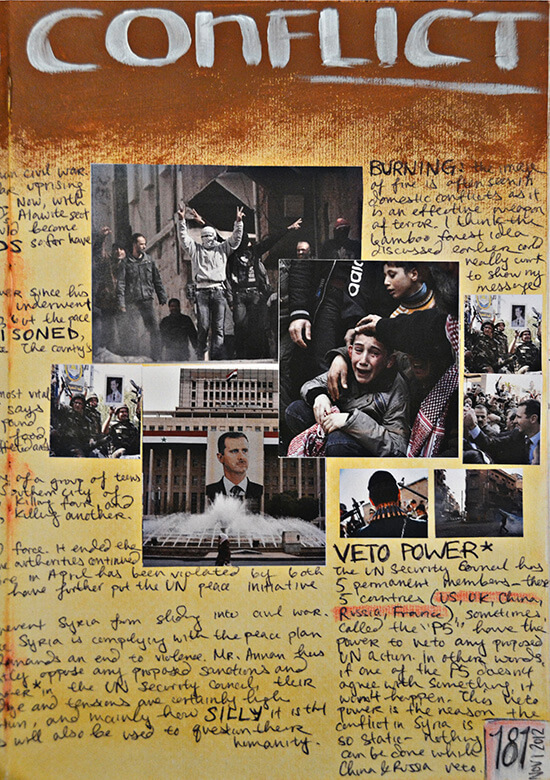 CONFLICT
civil war.
be uprising
Now, with
Alawite sect
become
safer have
ever since his
indenment
but the pace
ISONED,
The county's
most vital
says
food
of a group of teens
Southern city of
killing four and
killing another.
force. It ended the
the authorities continued
in April has been violated by both
have further put the UN peace initiative
prevent Syria from sliding into civil war.
Syria is complying with the peace plan
demands an end to violence. Mr. Annan has
oppose any proposed sanctions and
in the UN Security Council, their
and tensions are certainly high
and mainly how SILLY it is that
will also be used to question their
humanity.
BURNING: the image
of fire is often seen in
domestic conflicts as it
is an effective weapon
of terror. I think the
bamboo forest idea
discussed earlier could
really work
to show my
message
adidas
VETO POWER*
The UN Security Council has
5 permanent members - these
5 countries (US, UK, China,
Russia, France), sometimes
called the "P5", have the
power to veto any proposed
UN action. In other words,
if one of the P5 doesn't
agree with something it
won't happen. This veto
power is the reason the
conflict in Syria is
so static - nothing
can be done while
China & Russia veto.
181
Nov 1 2012